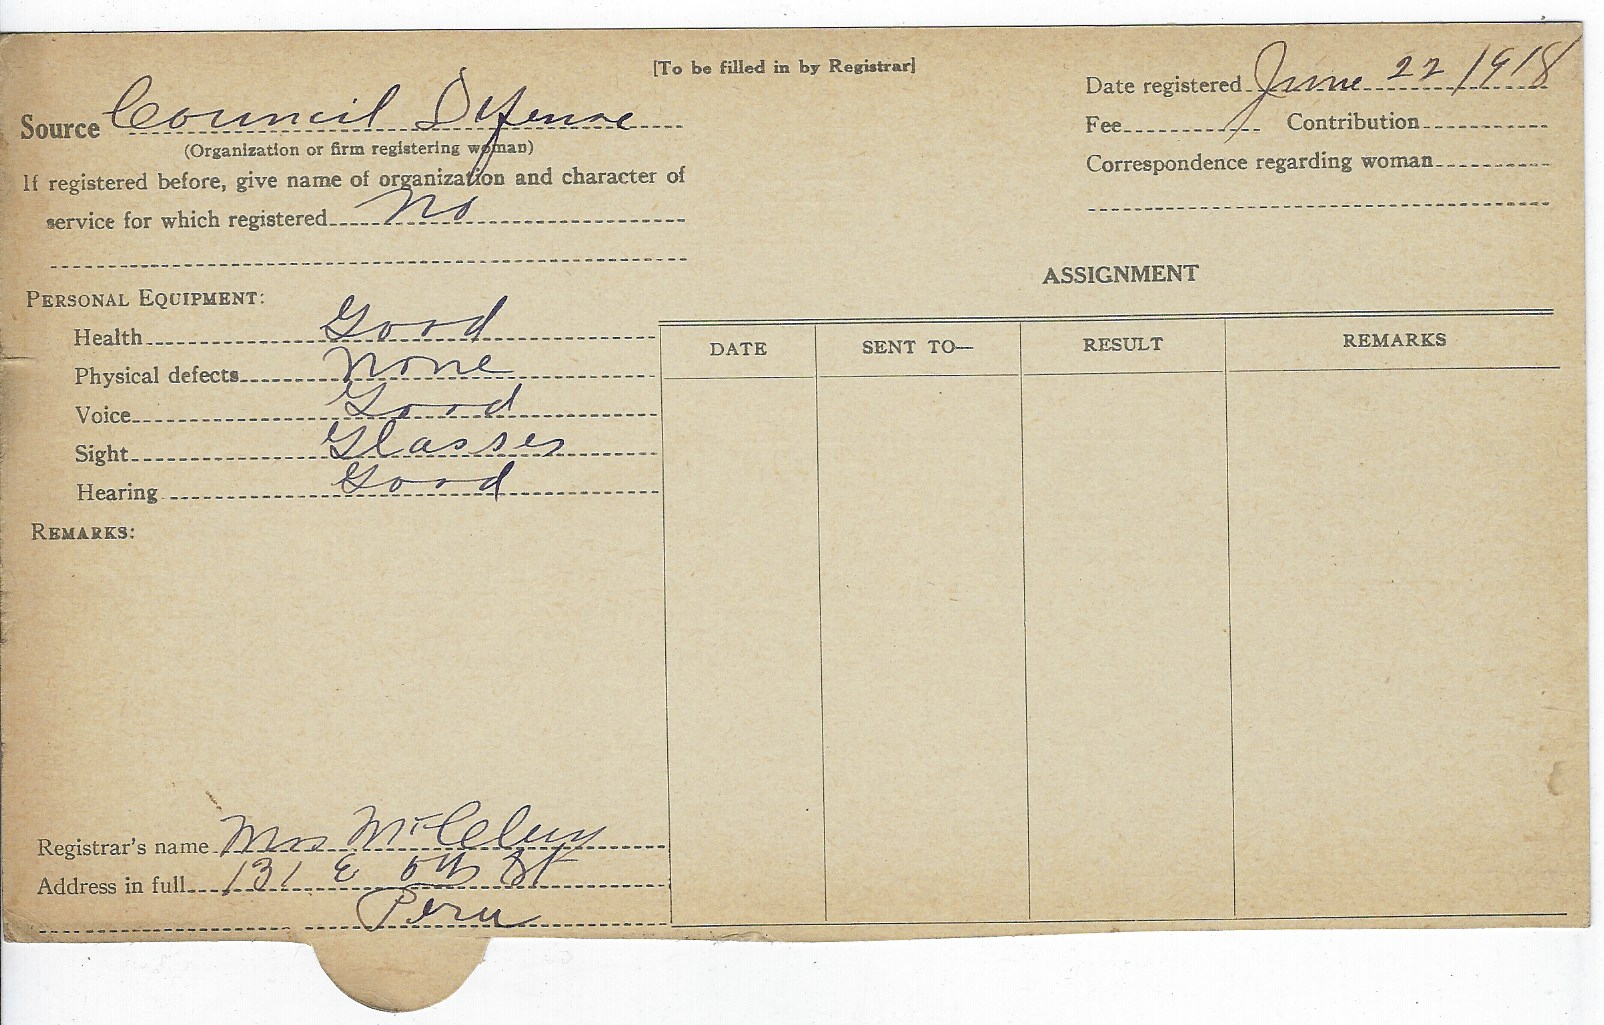 [To be filled in by Registrar]
Date registered June 22 1918
Source Council Defense
Fee Contribution
(Organization or firm registering woman)
Correspondence regarding woman
If registered before, give name of organization and character of
service for which registered No
ASSIGNMENT
PERSONAL EQUIPMENT:
Health Good
DATE SENT TO— RESULT REMARKS
Physical defects None
Voice Good
Sight Glasses
Hearing Good
REMARKS:
Registrar's name Mrs
Address in full 131 E 6th St
Peru